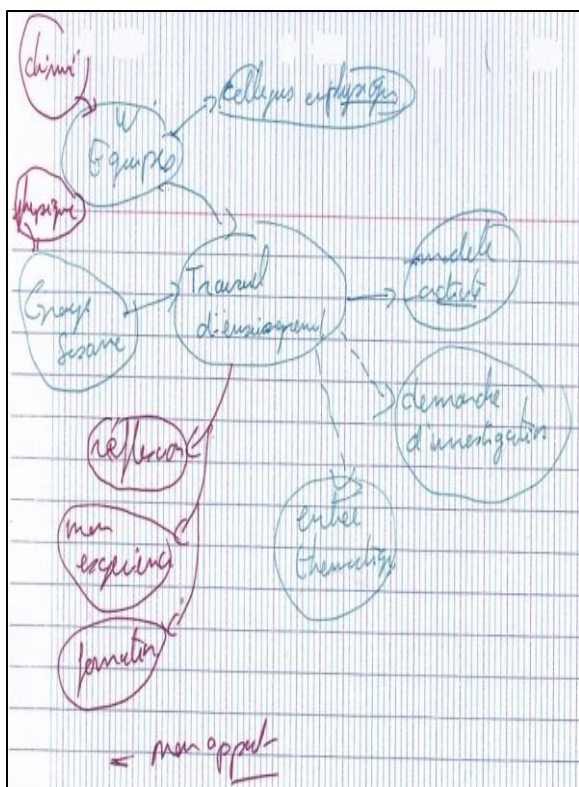 chimie
W
Equipes
collègues en physique
physique
Groupe
Sesame
Travail
d'enseignement
modèle
activité
démarche
d'investigation
entrée
thématique
réflexion
mon
expérience
formation
< mon apport